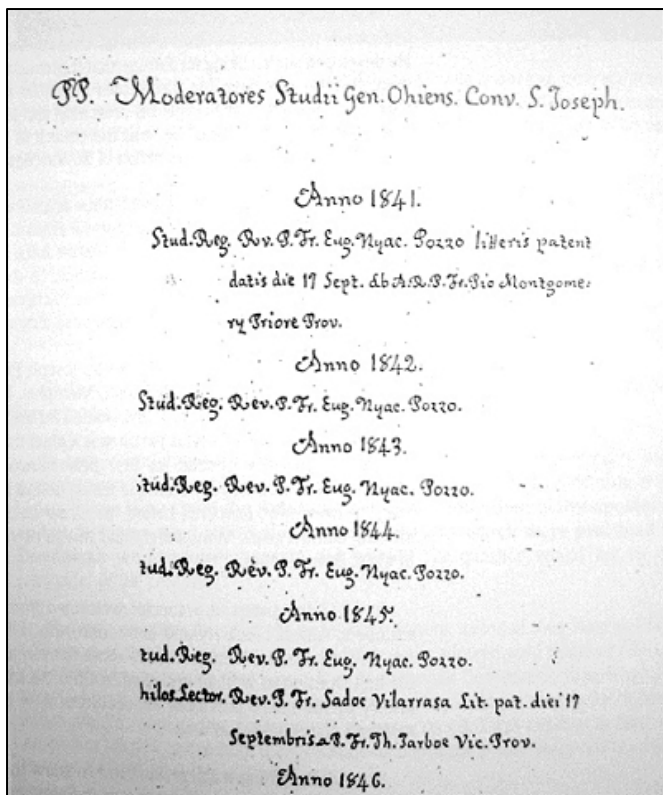 PP. Moderatores Studii Gen. Ohiens. Conv. S. Joseph.
Anno 1841.
Stud. Reg. Rv. P. Fr. Eug. Hyac. Pozzo litteris patent
datis die 17 Sept. ab A.R.P. Fr. Pio Montgome,
ry Priore Prov.
Anno 1842.
Stud. Reg. Rev. P. Fr. Eug. Hyac. Pozzo.
Anno 1843.
itud. Reg. Rev. P. Fr. Eug. Hyac. Pozzo.
Anno 1844.
tud. Reg. Rev. P. Fr. Eug. Hyac. Pozzo.
Anno 1845.
tud. Reg. Rev. P. Fr. Eug. Hyac. Pozzo.
hilos. Lector. Rev. P. Fr. Sadoc Vilarrasa Lit. pat. diei 17
Septembris a P. Fr. Th. Jarboe Vic. Prov.
Anno 1846.